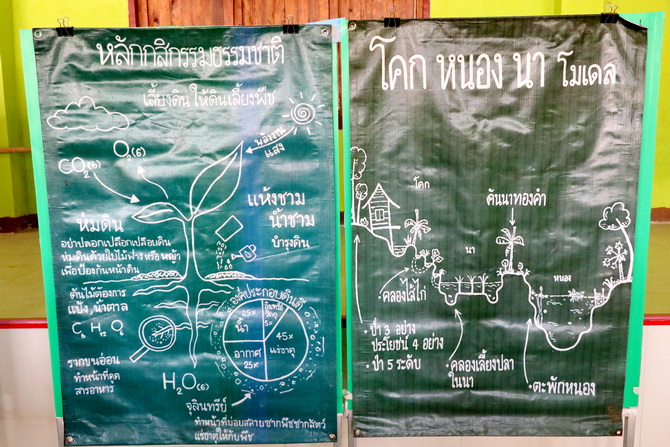 หลักกสิกรรมธรรมชาติ
เลี้ยงดิน ให้ดินเลี้ยงพืช
พลังงาน
แสง
O₂(6)
CO₂(6)
แห้งชาม
น้ำชาม
บำรุงดิน
ห่มดิน
อย่าปลอกเปลือกเปลือยดิน
ห่มดินด้วยใบไม้ ฟาง หรือหญ้า
เพื่อป้องกันหน้าดิน
ต้นไม้ต้องการ
แป้ง, น้ำตาล
C₆ H₁₂ O₆
องค์ประกอบดินดี
25%
น้ำ
อินทรีย์
วัตถุ
5%
45%
แร่ธาตุ
อากาศ
25%
รากขนอ่อน
ทำหน้าที่ดูด
สารอาหาร
H₂O(6)
จุลินทรีย์
ทำหน้าที่ย่อยสลายซากพืชซากสัตว์
แร่ธาตุให้กับพืช
โคก หนอง นา โมเดล
โคก
คันนาทองคำ
นา
หนอง
คลองไส้ไก่
• ป่า 3 อย่าง
ประโยชน์ 4 อย่าง
• ป่า 5 ระดับ
• คลองเลี้ยงปลา
ในนา
• ตะพักหนอง